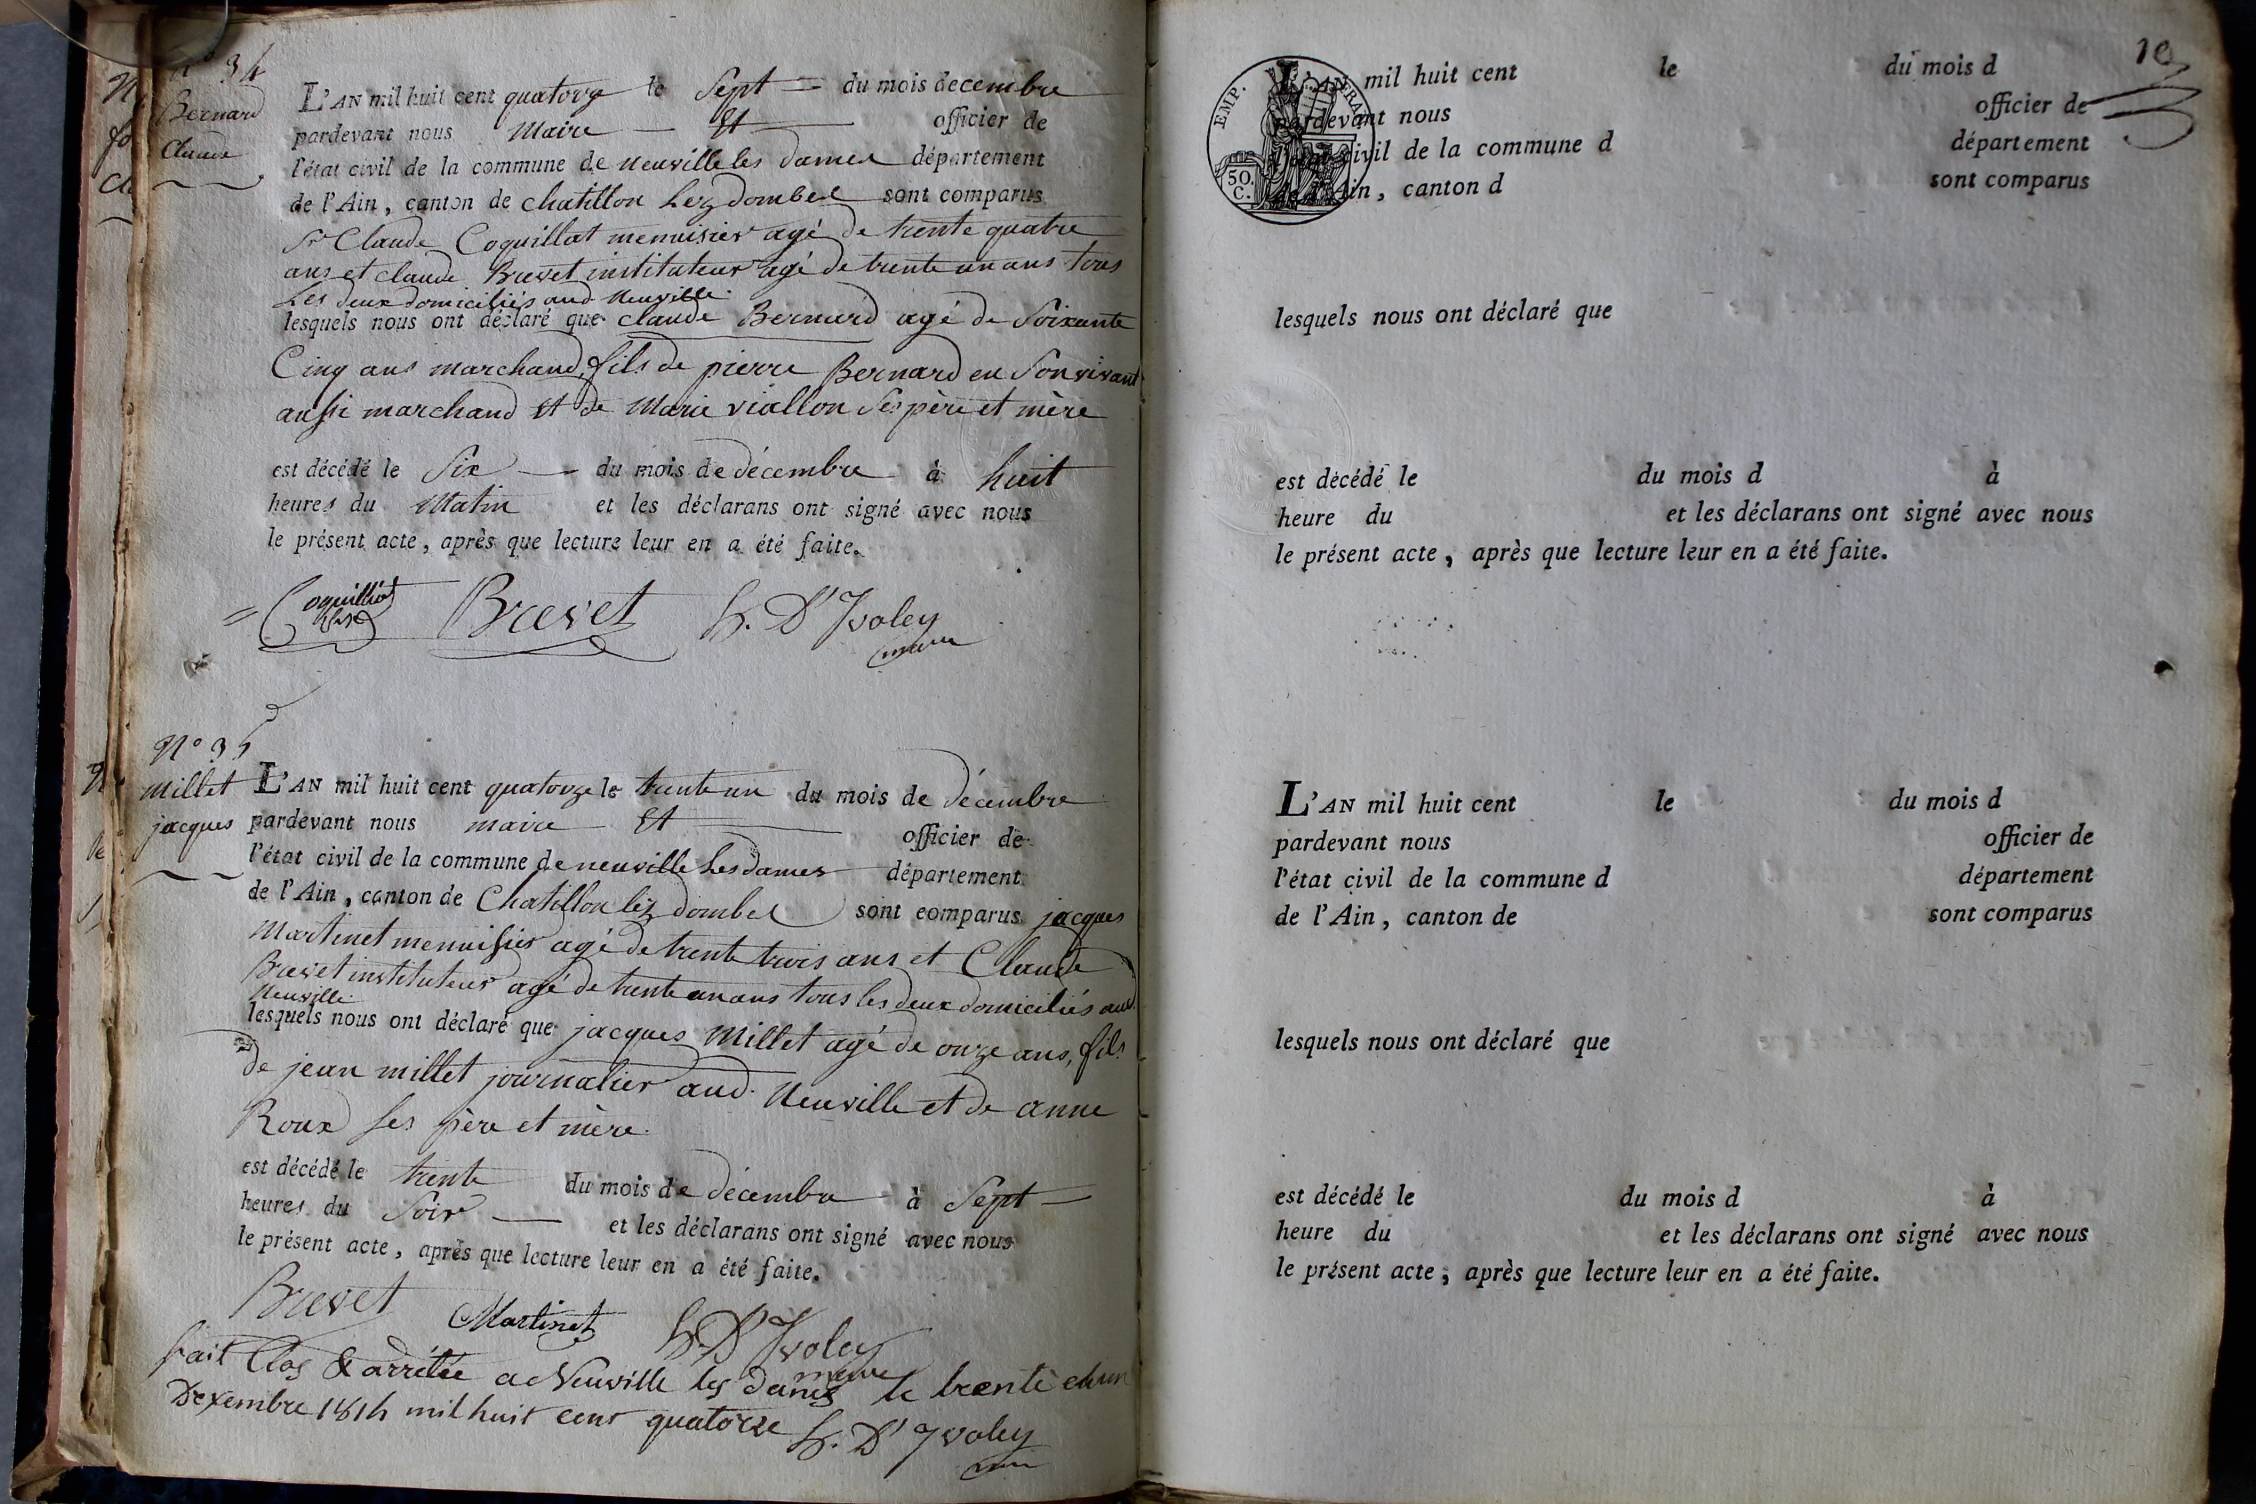 N° 34
Bernard
Claude
L'AN mil huit cent quatorze le Sept du mois decembre
pardevant nous Maire Et officier de
l'état civil de la commune de neuville les dames département
de l'Ain, canton de chatillon Lez dombes sont comparus
Sr Claude Coquillat menuisier agé de trente quatre
ans et claude Brevet instituteur agé de trente un ans tous
Les deux domiciliés aud. Neuville.
lesquels nous ont déclaré que claude Bernard agé de Soixante
Cinq ans marchand, fils de pierre Bernard en Son vivant
aussi marchand Et de Marie viallon Ses père et mère
est décédé le Six du mois de décembre à huit
heures du Matin et les déclarans ont signé avec nous
le présent acte, après que lecture leur en a été faite.
Coquilliat Brevet h. D'Ivoley
maire
N° 35
Millet
jacques
L'AN mil huit cent quatorze le trente un du mois de décembre
pardevant nous maire Et officier de
l'état civil de la commune de neuville Les dames département
de l'Ain, canton de Chatillon lez dombes sont comparus jacques
Martinet menuisier agé de trente trois ans et Claude
Brevet instituteur agé de trente un ans tous les deux domiciliés aud.
Neuville.
lesquels nous ont déclaré que jacques Millet agé de onze ans, fils
de jean millet journalier aud. Neuville et de anne
Roux Ses père et mère.
est décédé le trente du mois de décembre à Sept
heures du Soir et les déclarans ont signé avec nous
le présent acte, après que lecture leur en a été faite.
Brevet Martinet h. D'Ivoley
maire
fait Clos & arrêtée a Neuville les dames le trente et un
Dexembre 1814 mil huit cent quatorze h. D'Ivoley
maire
10
EMP. FRAN
50.
C.
L'AN mil huit cent le du mois d
pardevant nous officier de
l'état civil de la commune d département
de l'Ain, canton d sont comparus
lesquels nous ont déclaré que
est décédé le du mois d à
heure du et les déclarans ont signé avec nous
le présent acte, après que lecture leur en a été faite.
L'AN mil huit cent le du mois d
pardevant nous officier de
l'état civil de la commune d département
de l'Ain, canton de sont comparus
lesquels nous ont déclaré que
est décédé le du mois d à
heure du et les déclarans ont signé avec nous
le présent acte, après que lecture leur en a été faite.